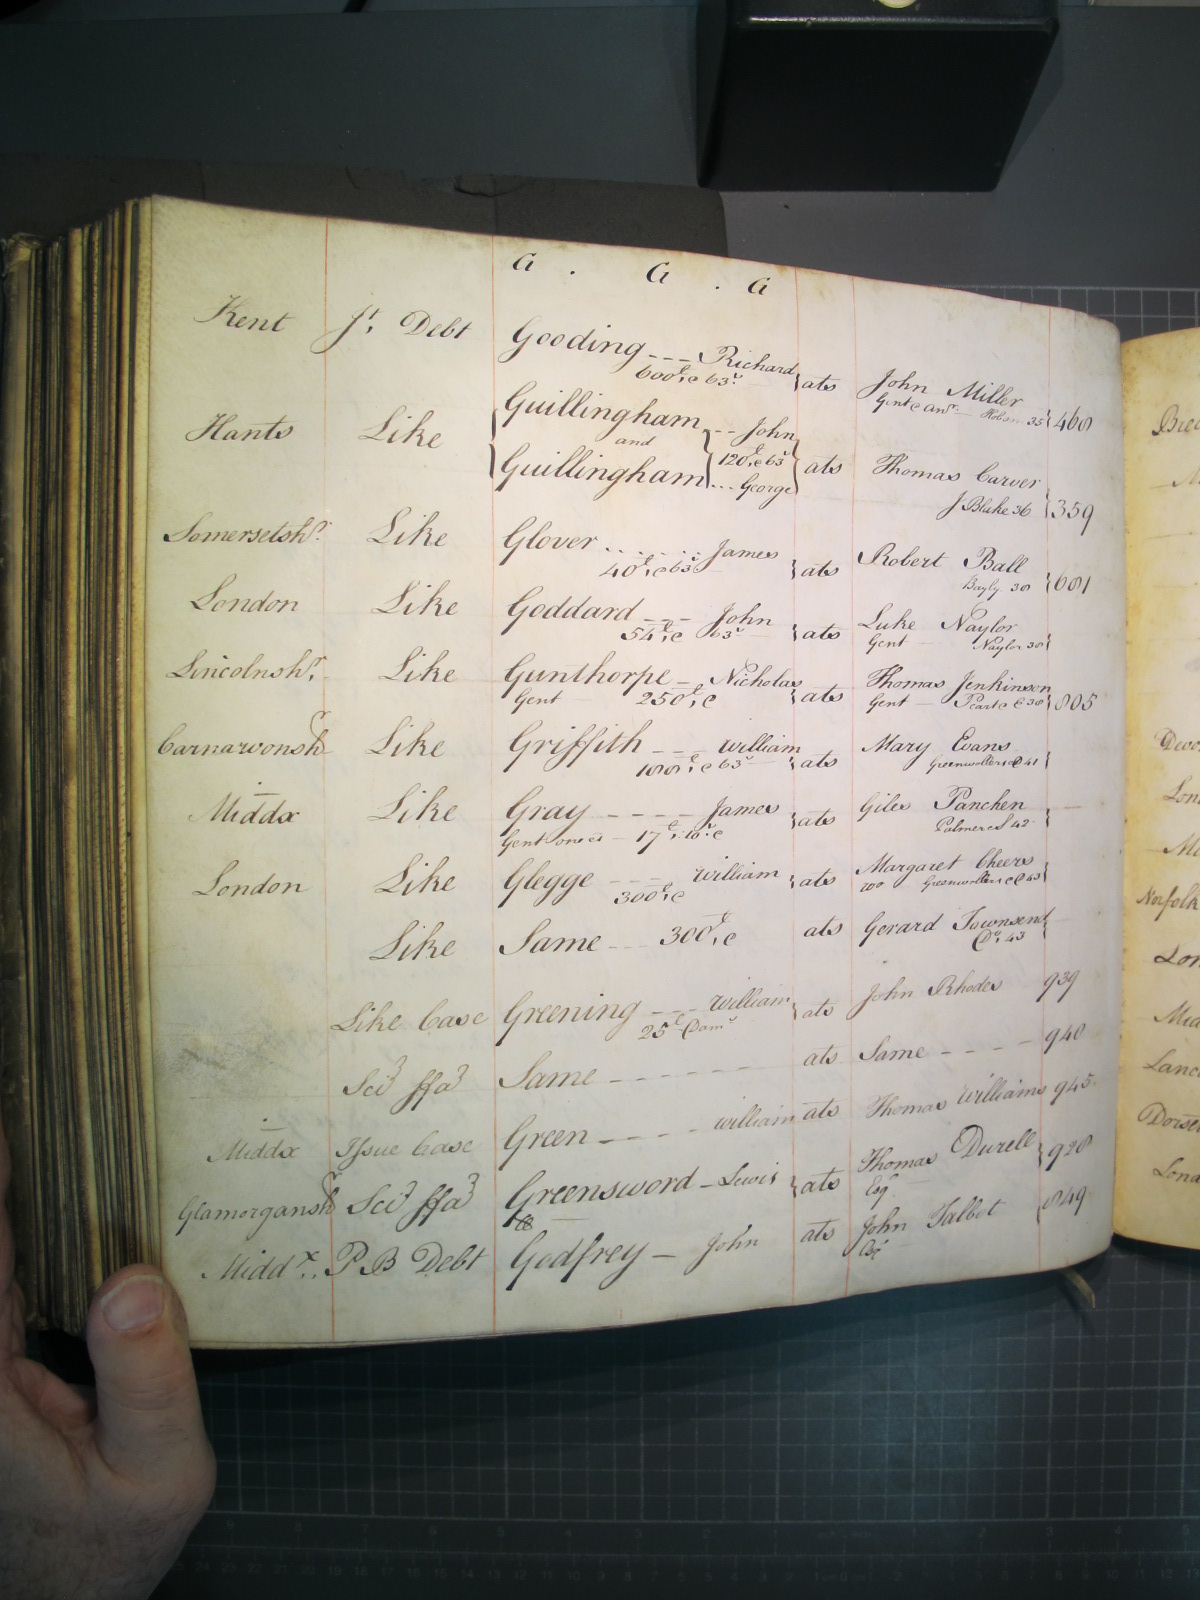 G . G . G
Kent Jt. Debt Gooding --- Richard } ats John Miller
600£, & 63s. Gent & anr. — Hobson 35 } 460
Hants Like { Guillingham -- John } ats Thomas Carver
and 120£, & 63s J. Blake 36 } 359
Guillingham ... George
Somersetshr. Like Glover ..... James } ats Robert Ball
40£, & 63s Bayly 38 } 681
London Like Goddard --- John } ats Luke Naylor
54£, & 63s Gent — Naylor 38 }
Lincolnshr. Like Gunthorpe - Nicholas } ats Thomas Jenkinson
Gent 250£, & Gent — 38 } 805
Carnarvonshr Like Griffith --- William } ats Mary Evans
100£, & 63s Greenwollers & C 41 }
Middx Like Gray ---- James } ats Giles Panchen
Gent one &c — 17£, 10s, & Palmer & 42 }
London Like Glegge --- William } ats Margaret Cheers
300£, & wo Greenwollers & C 43 }
Like Same --- 300£, & ats Gerard Townsend
Do. 43 }
Like Case Greening --- William } ats John Rhodes 939
25£ Dams
Sci ffa Same ------ ats Same ---- 940
Middx Issue Case Green ---- William ats Thomas Williams 945
Glamorganshr Sci ffa Greensword - Lewis } ats Thomas Durell } 928
Esqr.
Middx.. P B Debt Godfrey — John ats John Talbot { 849
Esqr
Devo
Lon
Norfolk
Lon
Mid
Lanc
Dorset
Lond